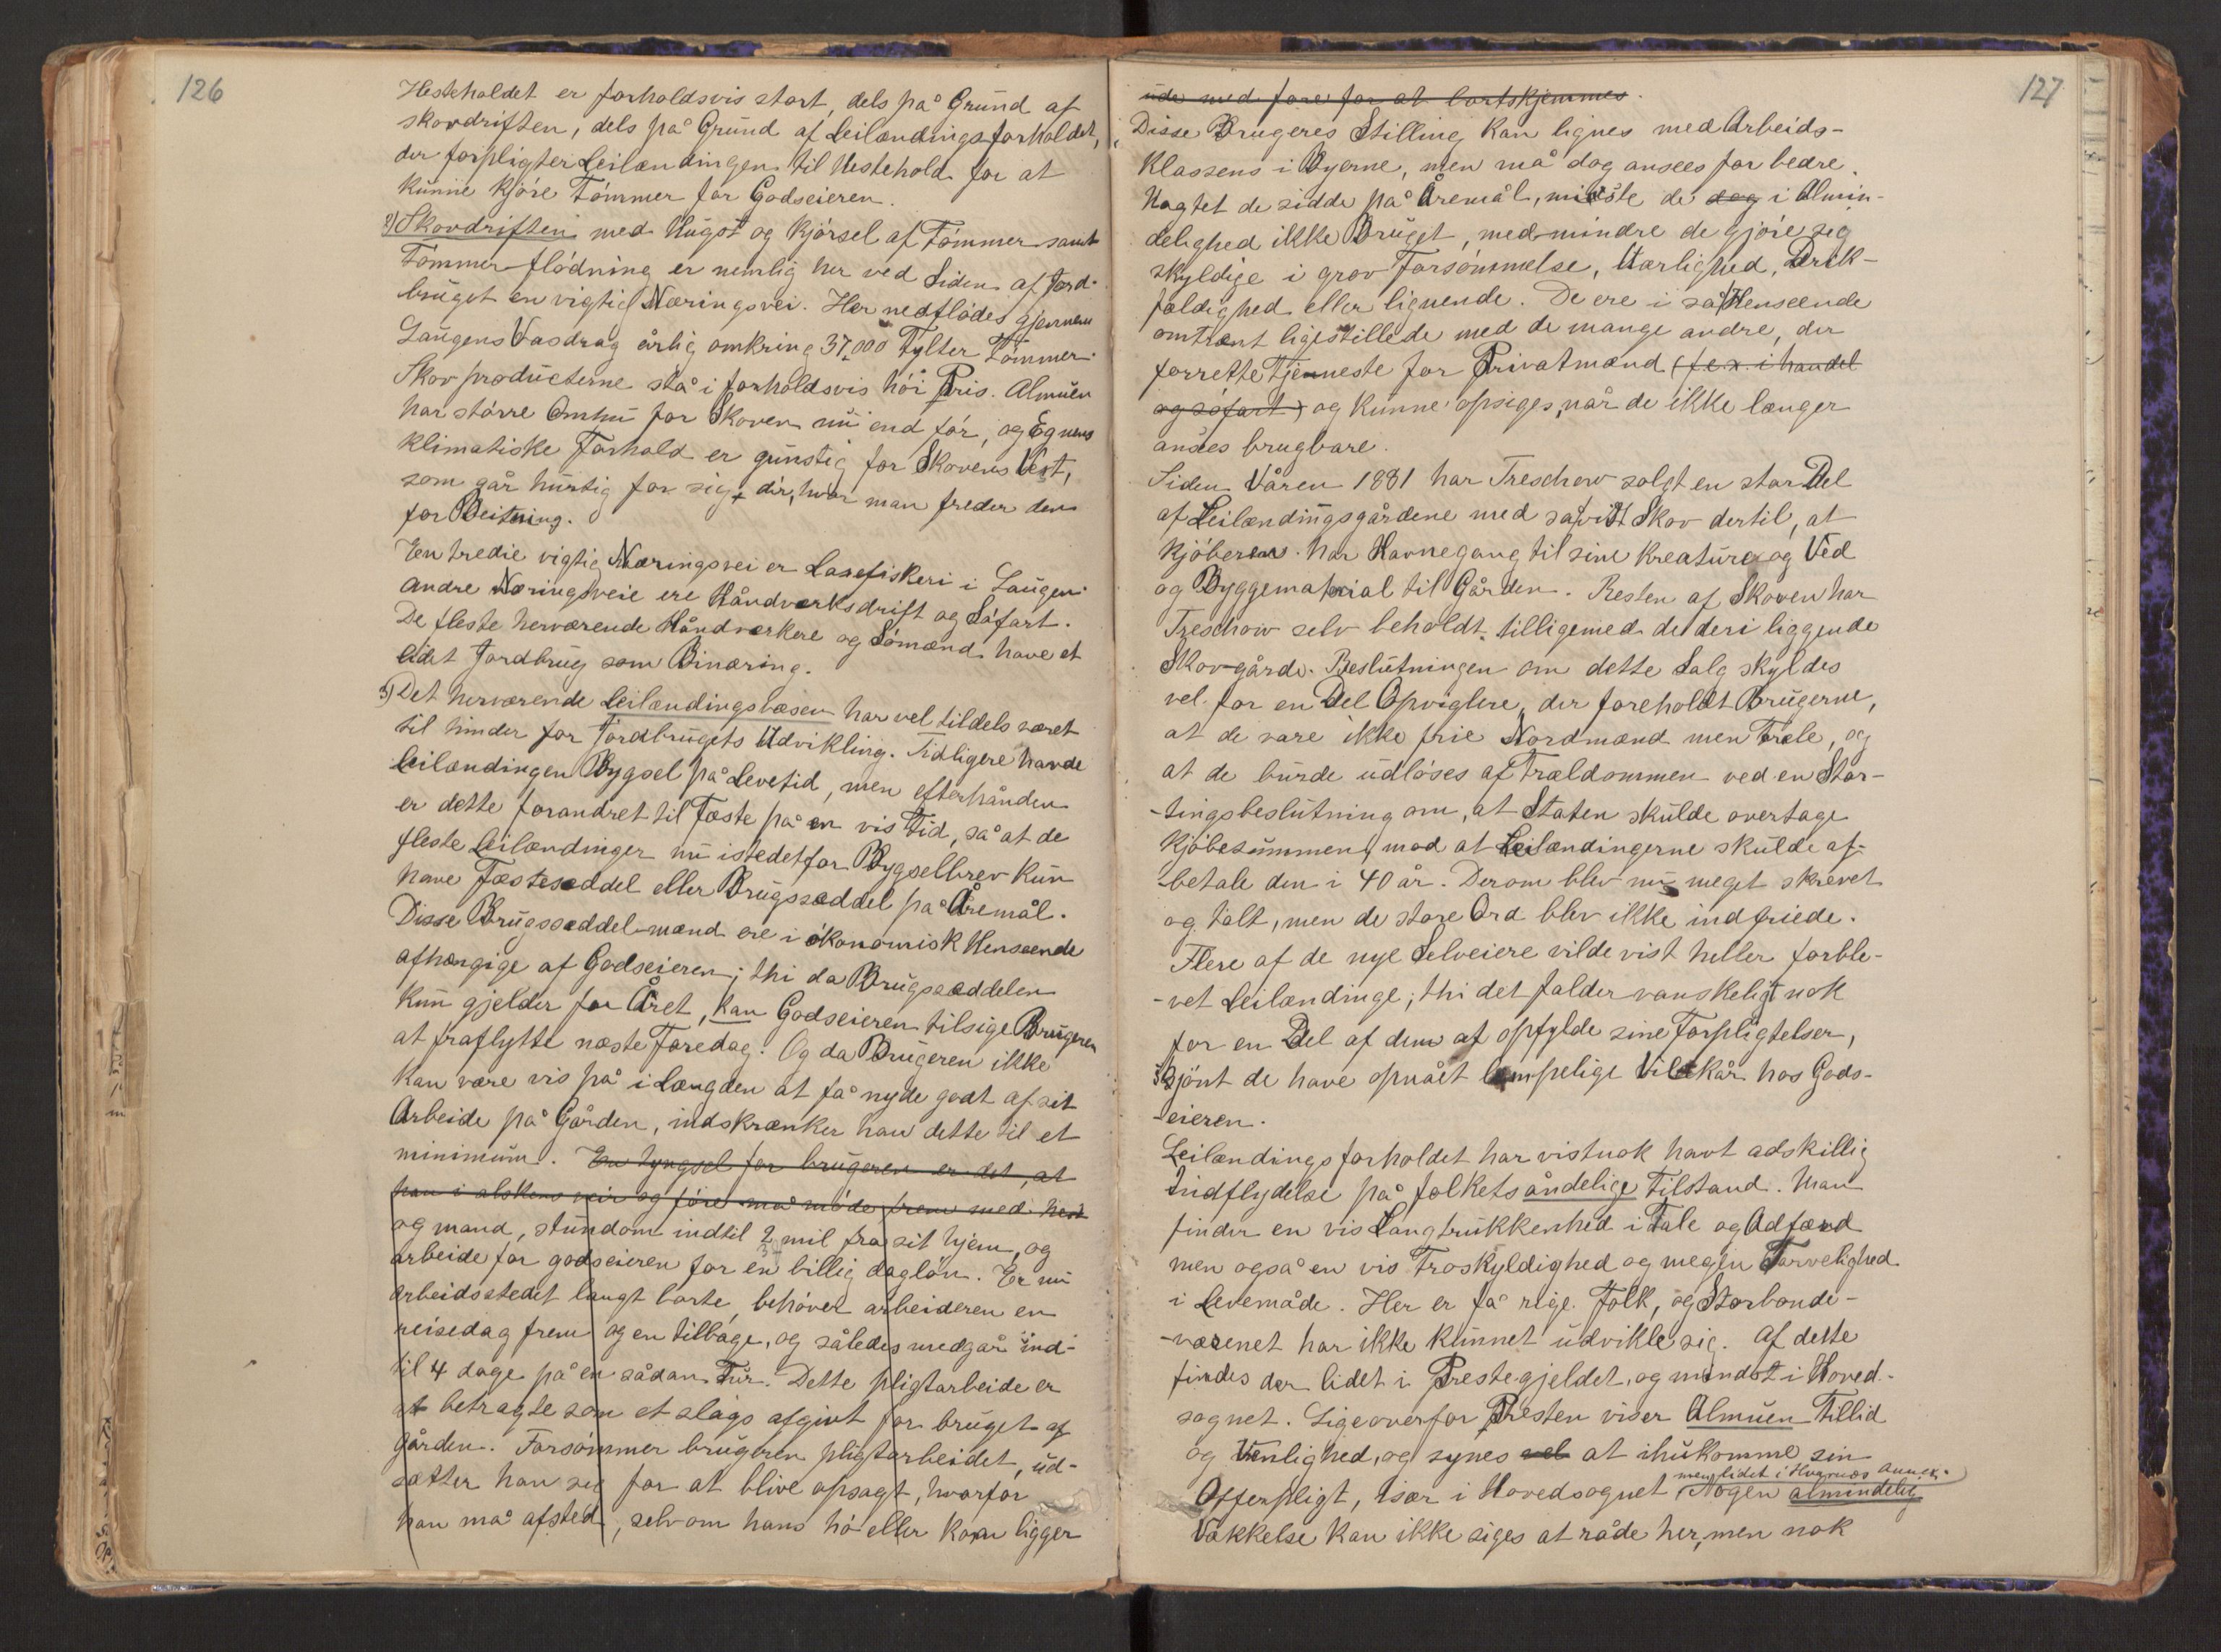 126
Hesteholdet er forholdsvis stort, dels på Grund af
skovdriften, dels på Grund af Leilændingsforholdet,
der forpligter Leilændingen til Hestehold for at
kunne kjöre Tömmer for Godseieren.
2) Skovdriften med Hugst og Kjörsel af Tömmer samt
Tömmer-flödning er nemlig her ved Siden af Jord-
bruget en vigtig Næringsvei. Her nedflödes gjennem
Laugens Vasdrag årlig omkring 37,000 Tylter Tömmer.
Skovproducterne stå i forholdsvis höi Pris. Almuen
har större Omhu for Skoven nu end för, og Egnens
klimatiske Forhold er gunstig for Skovens Vext,
som går hurtig for sig der, hvor man freder den
for Beitning.
En tredie vigtig Næringsvei er Laxefiskeri i Laugen.
Andre Næringsveie ere Håndverksdrift og Söfart.
De fleste herværende Håndverkere og Sömænd have et
lidet Jordbrug som Binæring.
3) Det herværende Leilændingsvæsen har vel tildels været
til hinder for Jordbrugets Udvikling. Tidligere havde
Leilændingen Bygsel på Levetid, men efterhånden
er dette forandret til Fæste på en vis Tid, så at de
fleste Leilændinger nu istedetfor Bygselbrev kun
have Fæstesæddel eller Brugssæddel på Åremål.
Disse Brugssæddel-mænd ere i ökonomisk Henseende
afhængige af Godseieren; thi da Brugssæddelen
kun gjelder for Året, kan Godseieren tilsige Brugeren
at fraflytte næste Faredag. Og da Brugeren ikke
kan være vis på i Længden at få nyde godt af sit
Arbeide på Gården, indskrænker han dette til et
minimum. En tyngsel for brugeren er det, at
han i alskens veir og före må möde frem med hest
og mand, stundom indtil 2 mil fra sit hjem, og
arbeide for godseieren for en billig daglön. Er nu
arbeidsstedet langt borte, behöver arbeideren en
reisedag frem og en tilbage, og således medgår ind-
til 4 dage på en sådan Tur. Dette pligtarbeide er
at betragte som et slags afgivt for bruget af
gården. Forsömmer brugeren pligtarbeidet, ud-
sætter han sig for at blive opsagt, hvorfor
han må afsted, selv om hans hö eller korn ligger
127
ude med fare for at bortskjemmes.
Disse Brugeres Stilling kan lignes med Arbeids-
klassens i Byerne, men må dog ansees for bedre.
Uagtet de sidde på Åremål, miste de dog i Almin-
delighed ikke Bruget, med mindre de gjöre sig
skyldige i grov Forsömmelse, Uærlighed, Drik-
fældighed eller lignende. De ere i så Henseende
omtrent ligestillede med de mange andre, der
forrette Tjenneste for Privatmænd (f.ex. i handel
og söfart) og kunne opsiges, når de ikke længer
ansees brugbare.
Siden Våren 1881 har Treschow solgt en stor Del
af Leilændingsgårdene med såvidt Skov dertil, at
Kjöberens har Havnegang til sine Kreaturer og Ved
og Byggematerial til Gården. Resten af Skoven har
Treschow selv beholdt tilligemed de deri liggende
Skovgårde. Beslutningen om dette Salg skyldes
vel for en Del Opviglere, der foreholdt Brugerne,
at de vare ikke frie Nordmænd men Træle, og
at de burde udlöses af Trældommen ved en Stor-
-tingsbeslutning om, at Staten skulde overtage
Kjöbesummen, mod at Leilændingerne skulde af-
-betale den i 40 år. Derom blev nu meget skrevet
og talt, men de store Ord blev ikke indfriede.
Flere af de nye Selveiere vilde vist heller forble-
-vet Leilændinge; thi det falder vanskeligt nok
for en Del af dem at opfylde sine Forpligtelser,
skjönt de have opnået lempelige Vilkår hos Gods-
-eieren.
Leilændingsforholdet har vistnok havt adskillig
Indflydelse på folkets åndelige Tilstand. Man
finder en vis Langtrukkenhed i Tale og Adfærd
men også en vis Troskyldighed og megen Tarvelighed
i Levemåde. Her er få rige Folk, og Storbonde-
-væsenet har ikke kunnet udvikle sig. Af dette
findes der lidet i Prestegjeldet, og mindst i Hoved-
sognet. Ligeoverfor Presten viser Almuen Tillid
og Venlighed, og synes vel at ihukomme sin
men lidet i Hvarnæs Annex.
Offerpligt, især i Hovedsognet Nogen almindelig
Vækkelse kan ikke siges at råde her, men nok